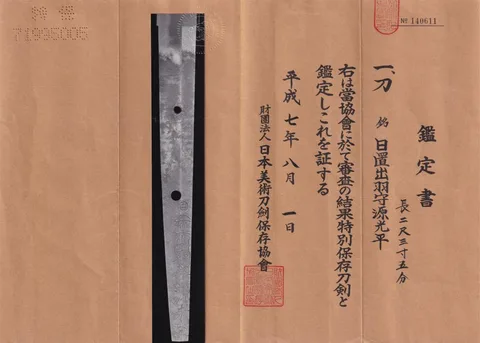 鑑定書
一、刀 銘 日置出羽守源光平
長二尺三寸五分
右は當協會に於て審査の結果特別保存刀劍と
鑑定しこれを証する
平成七年八月一日
財團法人 日本美術刀劍保存協會
№ 140611
71995005